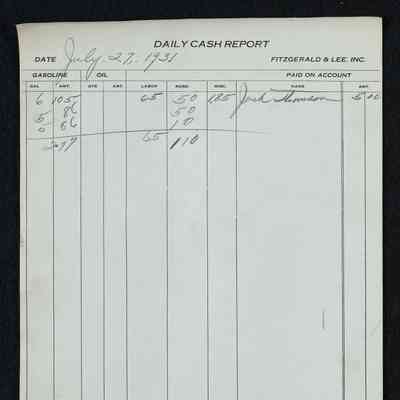 DAILY CASH REPORT
DATE July 27, 1931 FITZGERALD & LEE, INC.
GASOLINE OIL PAID ON ACCOUNT
GAL. AMT. QTS. AMT. LABOR MDSE. MISC. NAME AMT.
6 105 65 50 185 Jack 5 00
5 86 50
5 86 10
277 65 110